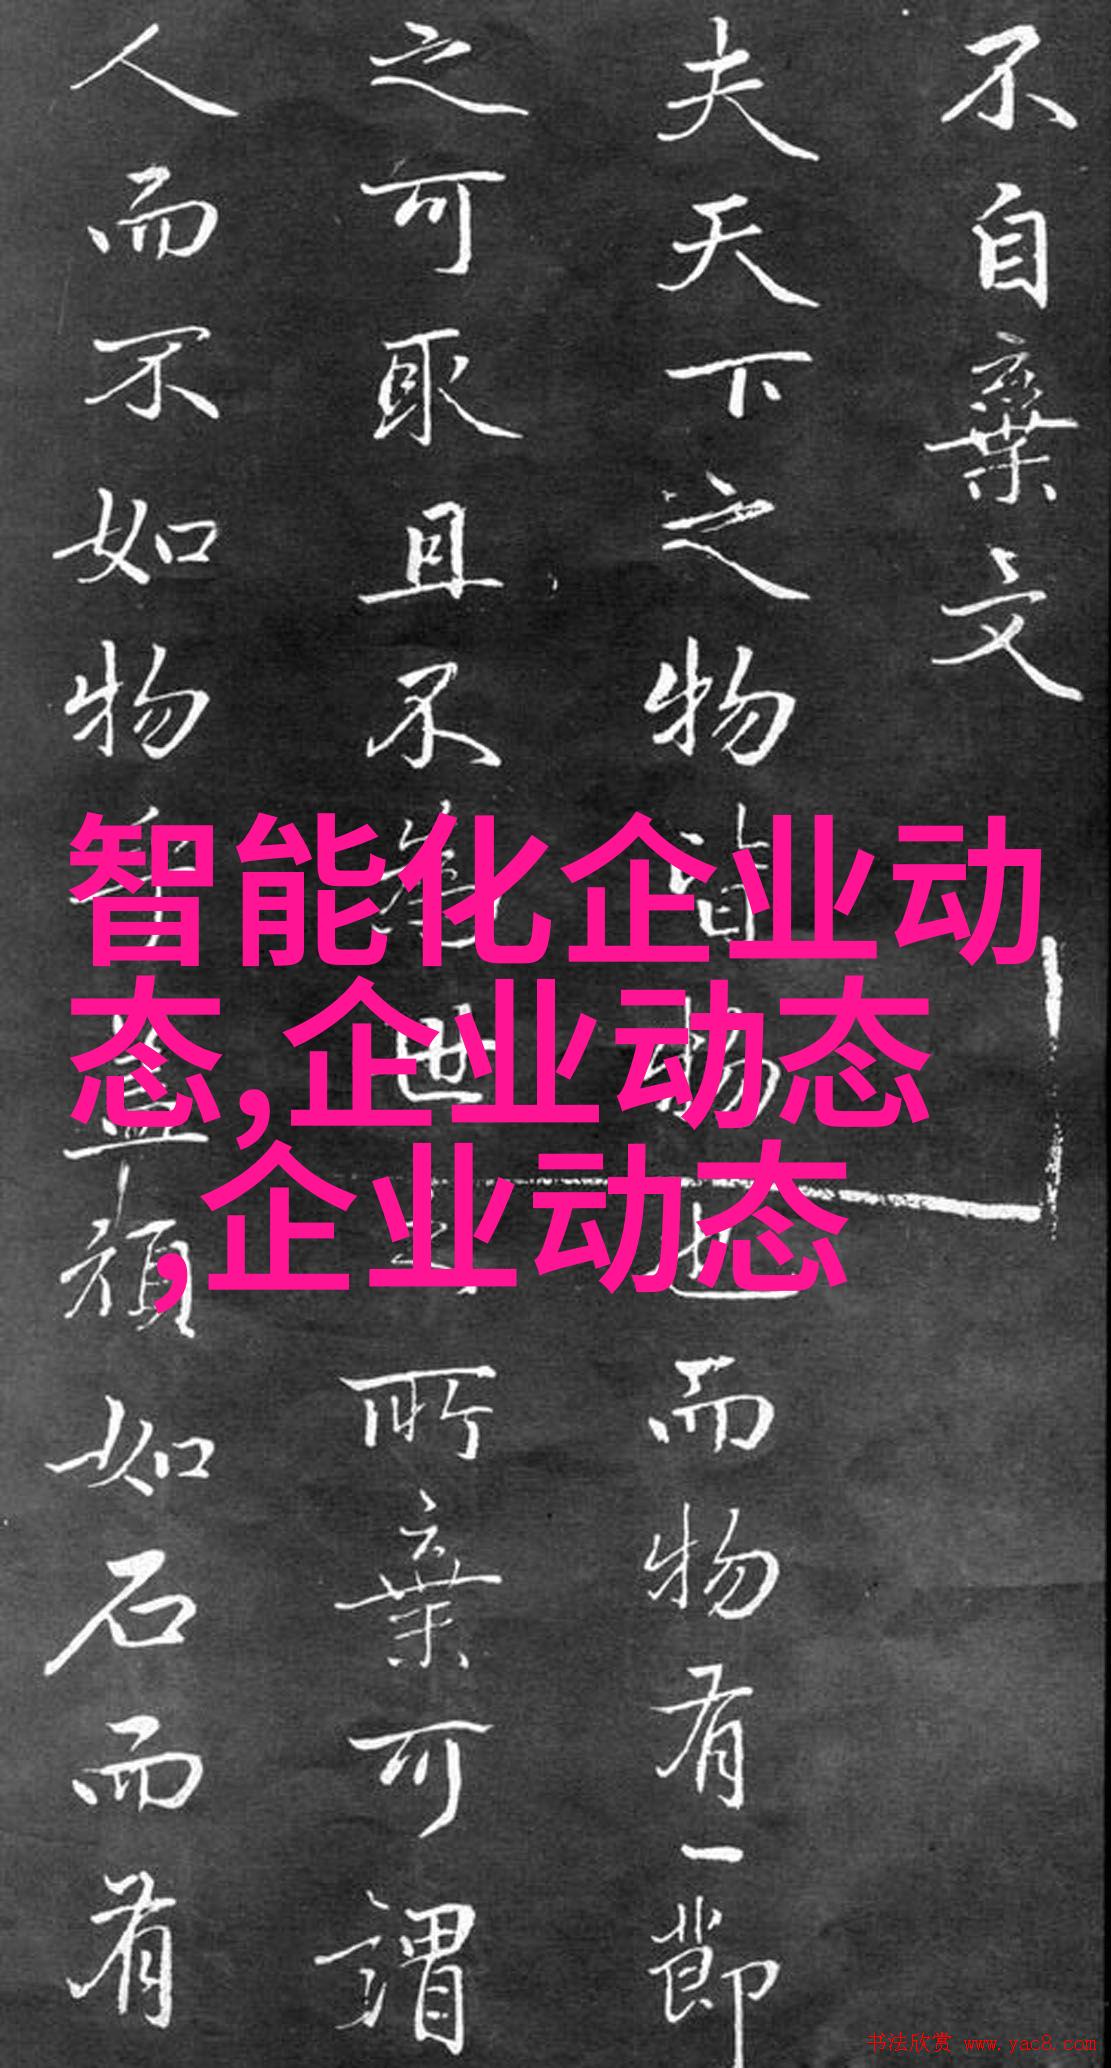 不自棄文
夫天下之物皆物也而物有一節
之可取且不為世之所棄可謂
人而不如物乎蓋頑如石而有
智能化企业动
态,企业动态
,企业动态
书法欣赏 www.yac8.com